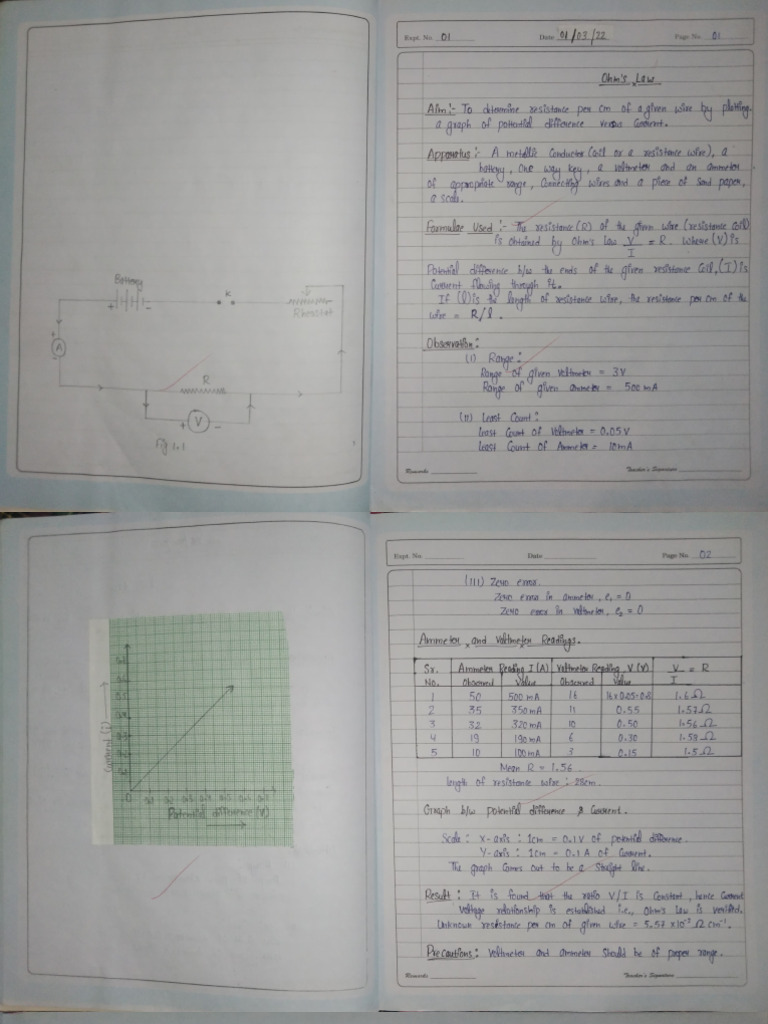 Battery
+ -
K
Rheostat
+
A
-
R
+ V -
Fig 1.1
Expt. No. 01 Date 01/03/22 Page No. 01
Ohm's Law
Aim :- To determine resistance per cm of a given wire by plotting
a graph of potential difference versus Current.
Apparatus :- A metallic Conductor (Coil or a resistance wire), a
battery, One way key, a voltmeter and an ammeter
of appropriate range, Connecting wires and a piece of Sand paper,
a scale.
Formulae Used :- The resistance (R) of the given wire (resistance Coil)
is obtained by Ohm's law V/I = R. Where (V) is
Potential difference b/w the ends of the given resistance Coil, (I) is
Current flowing through it.
If (l) is the length of resistance wire, the resistance per cm of the
wire = R/l.
Observation :
(I) Range :
Range of given Voltmeter = 3V
Range of given ammeter = 500 mA
(II) Least Count :
Least Count of Voltmeter = 0.05 V
Least Count of Ammeter = 10mA
Remarks Teacher's Signature
Current (I)
0
Potential difference (V)
Expt. No. Date Page No. 02
(III) Zero error.
Zero error in ammeter, e₁ = 0
Zero error in voltmeter, e₂ = 0
Ammeter and Voltmeter Readings.
Sr. Ammeter Reading I (A) Voltmeter Reading, V (V) V/I = R
No. Observed Value Observed Value
1 50 500 mA 16 16x0.05=0.8 1.6 Ω
2 35 350 mA 11 0.55 1.57 Ω
3 32 320 mA 10 0.50 1.56 Ω
4 19 190 mA 6 0.30 1.58 Ω
5 10 100 mA 3 0.15 1.5 Ω
Mean R = 1.56
length of resistance wire : 28cm
Graph b/w potential difference & Current.
Scale : X-axis : 1cm = 0.1 V of potential difference.
Y-axis : 1cm = 0.1 A of Current.
The graph comes out to be a Straight line.
Result : It is found that the ratio V/I is Constant, hence Current
Voltage relationship is established i.e., Ohm's Law is verified.
Unknown resistance per cm of given wire = 5.57 x10⁻² Ω cm⁻¹.
Precautions : Voltmeter and ammeter Should be of proper range.
Remarks Teacher's Signature